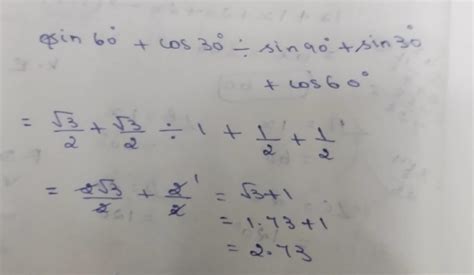 sin 60° + cos 30° ÷ sin 90° + sin 30°
+ cos 60°
= √3/2 + √3/2 ÷ 1 + 1/2 + 1/2
= 2√3/2 + 2/2 1 = √3+1
= 1.73+1
= 2.73